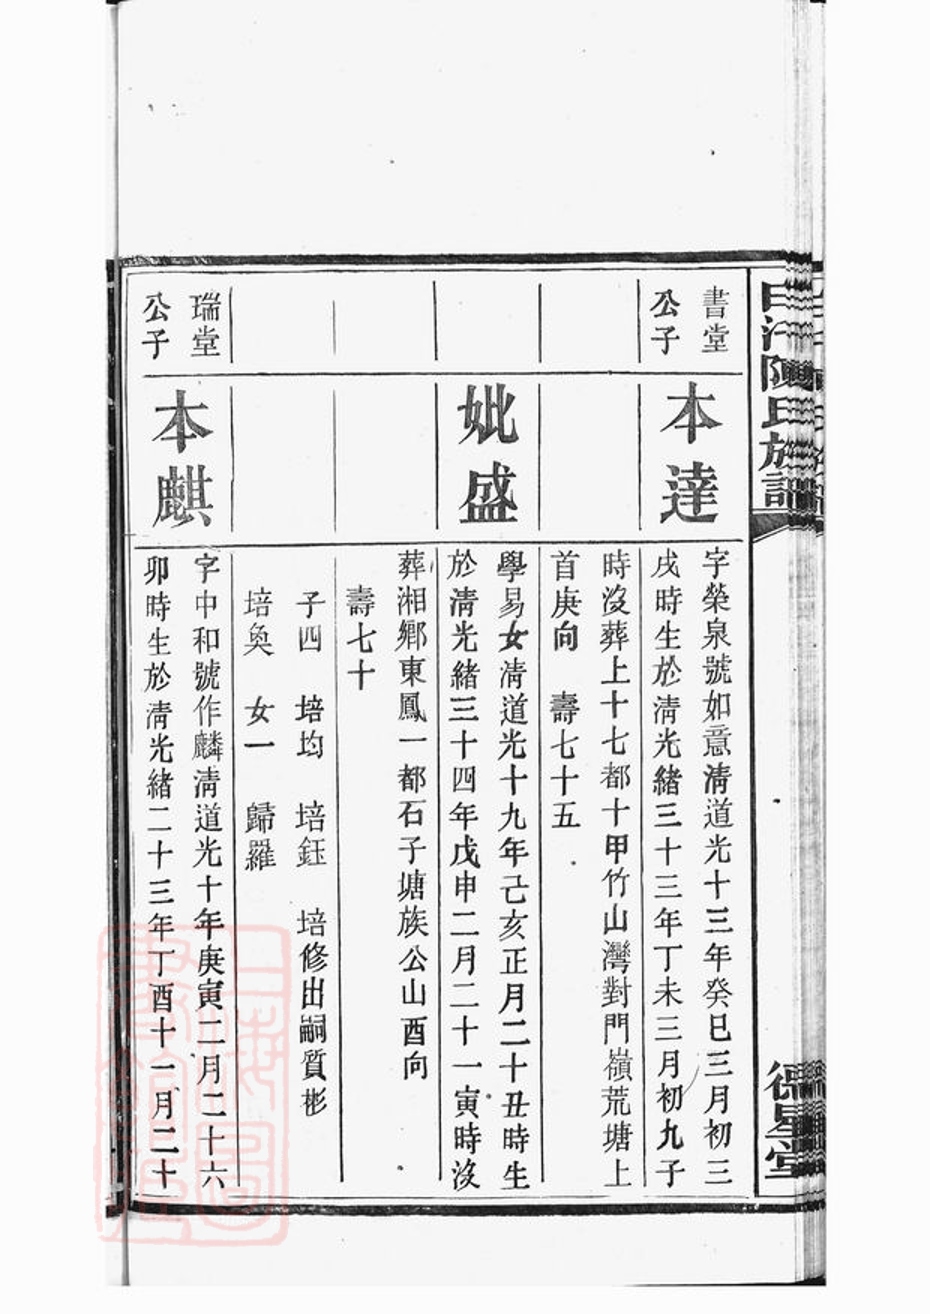 陳氏族譜
德星堂
書堂
公子
本達
字榮泉號如意清道光十三年癸巳三月初三
戌時生於清光緒三十三年丁未三月初九子
時沒葬上十七都十甲竹山灣對門嶺荒塘上
首庚向 壽七十五
妣盛
學易女清道光十九年己亥正月二十丑時生
於清光緒三十四年戊申二月二十一寅時沒
葬湘鄉東鳳一都石子塘族公山酉向
壽七十
子四 培均 培鈺 培修出嗣質彬
培奐 女一 歸羅
瑞堂
公子
本麒
字中和號作麟清道光十年庚寅二月二十六
卯時生於清光緒二十三年丁酉十一月二十